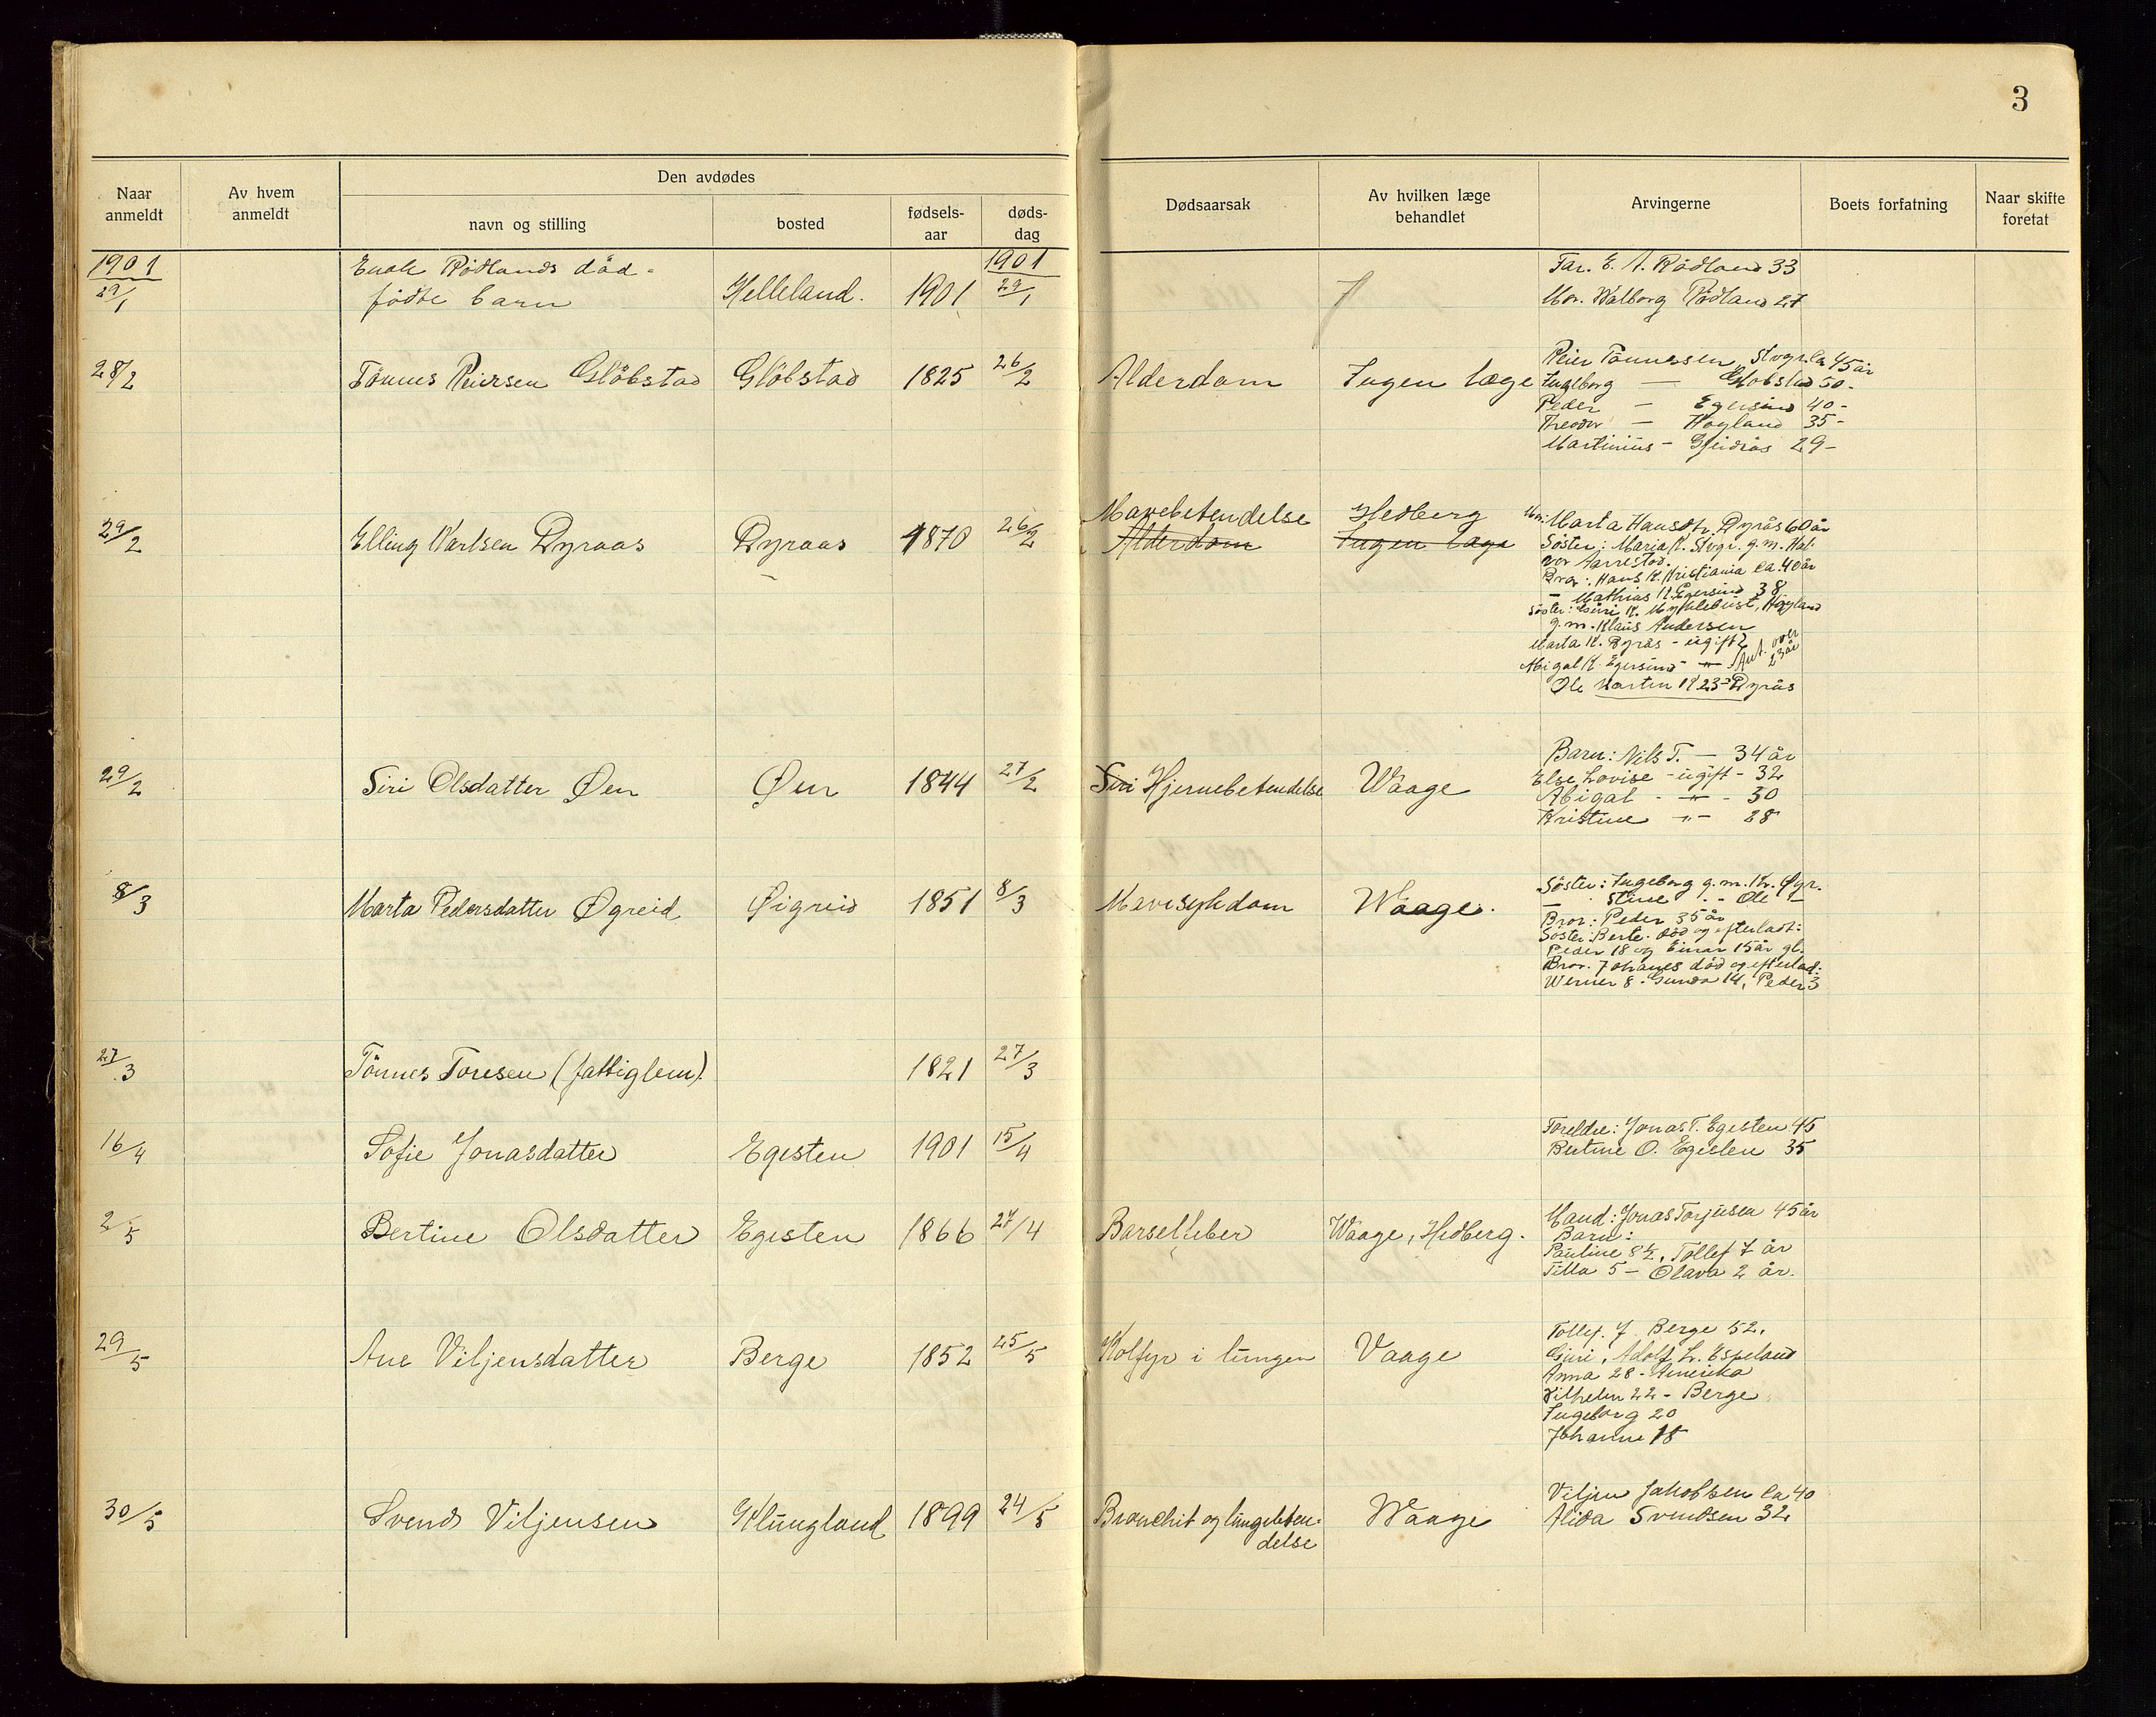 3
Naar anmeldt
Av hvem anmeldt
Den avdødes
navn og stilling
bosted
fødsels-aar
døds-dag
Dødsaarsak
Av hvilken læge behandlet
Arvingerne
Boets forfatning
Naar skifte foretat
1901
1901
29/1 Rødlands død-
fødte barn Helleland. 1901 29/1
Far. E. A. Rødland 33
Mor. Walborg Rødland 27
28/2 Tønnes Peiersen Gløbstad Gløbstad 1825 26/2 Alderdom Ingen læge
Peier Tønnessen, Stvgr. ca 45 år
Ingeborg — Gløbstad 50 -
Peder — Egersund 40 -
Theodor — Høyland 35 -
Martinius - 29 -
29/2 Elling Karlsen Dyraas Dyraas 1870 26/2 Mavebetendelse Hedberg
Alderdom Ingen læge
Mor: Marta Hansdtr. Dyrås 60 år
Søster: Maria K. Stvgr. g.m. Hal-
vor Aarrestad.
Bror: Hans K. Kristiania ca. 40 år
— Mathias K. Egersund 38
Søster: Siri K. Myklebust, Høyland
g.m. Klaus Andersen
Marta K. Dyrås - ugift
Abigal K. Egersund - " - Ant. over 23 år
Ole Martin K 23 - Dyrås
29/2 Siri Olsdatter Øen Øen 1844 27/2 Siri Hjernebetendelse Waage
Barn: Nils T. — 34 år
Else Lovise - ugift - 32
Abigal - " - 30
Kristine - " - 28
8/3 Marta Pedersdatter Øgreid Øigreid 1851 8/3 Mavesykdom Waage.
Søster: Ingeborg g.m. Kr. Øgr.
— Stine - - Ole —
Bror: Peder 35 år
Søster: Berte. død og efterladt:
Peder 18 og Einar 15 år gl.
Bror. Johanes død og efterlad:
Werner 8 - Gunda 14, Peder 3
27/3 Tønnes Toresen (fattiglem). 1821 27/3
16/4 Sofie Jonasdatter Egesten 1901 15/4
Foreldre: Jonas T. Egesten 45
Bertine O. Egesten 35
2/5 Bertine Olsdatter Egesten 1866 27/4 Barselfeber Waage, Hedberg.
Mand: Jonas Torjusen 45 år
Barn:
Pauline 8½, Tollef 7 år
Tilla 5 - Olava 2 år.
29/5 Ane Viljensdatter Berge 1852 25/5 Kolfyr i lungen Vaage
Tollef. J. Berge 52.
Guri, Adolf L. Espeland
Anna 28 - Amerika
Vilhelm 22 - Berge
Ingeborg 20
Johanne 18
30/5 Svend Viljensen Klungland 1899 24/5 Bronchit og lungebeten-
delse Waage
Viljen Jakobsen ca 40
Alida Svendsen 32